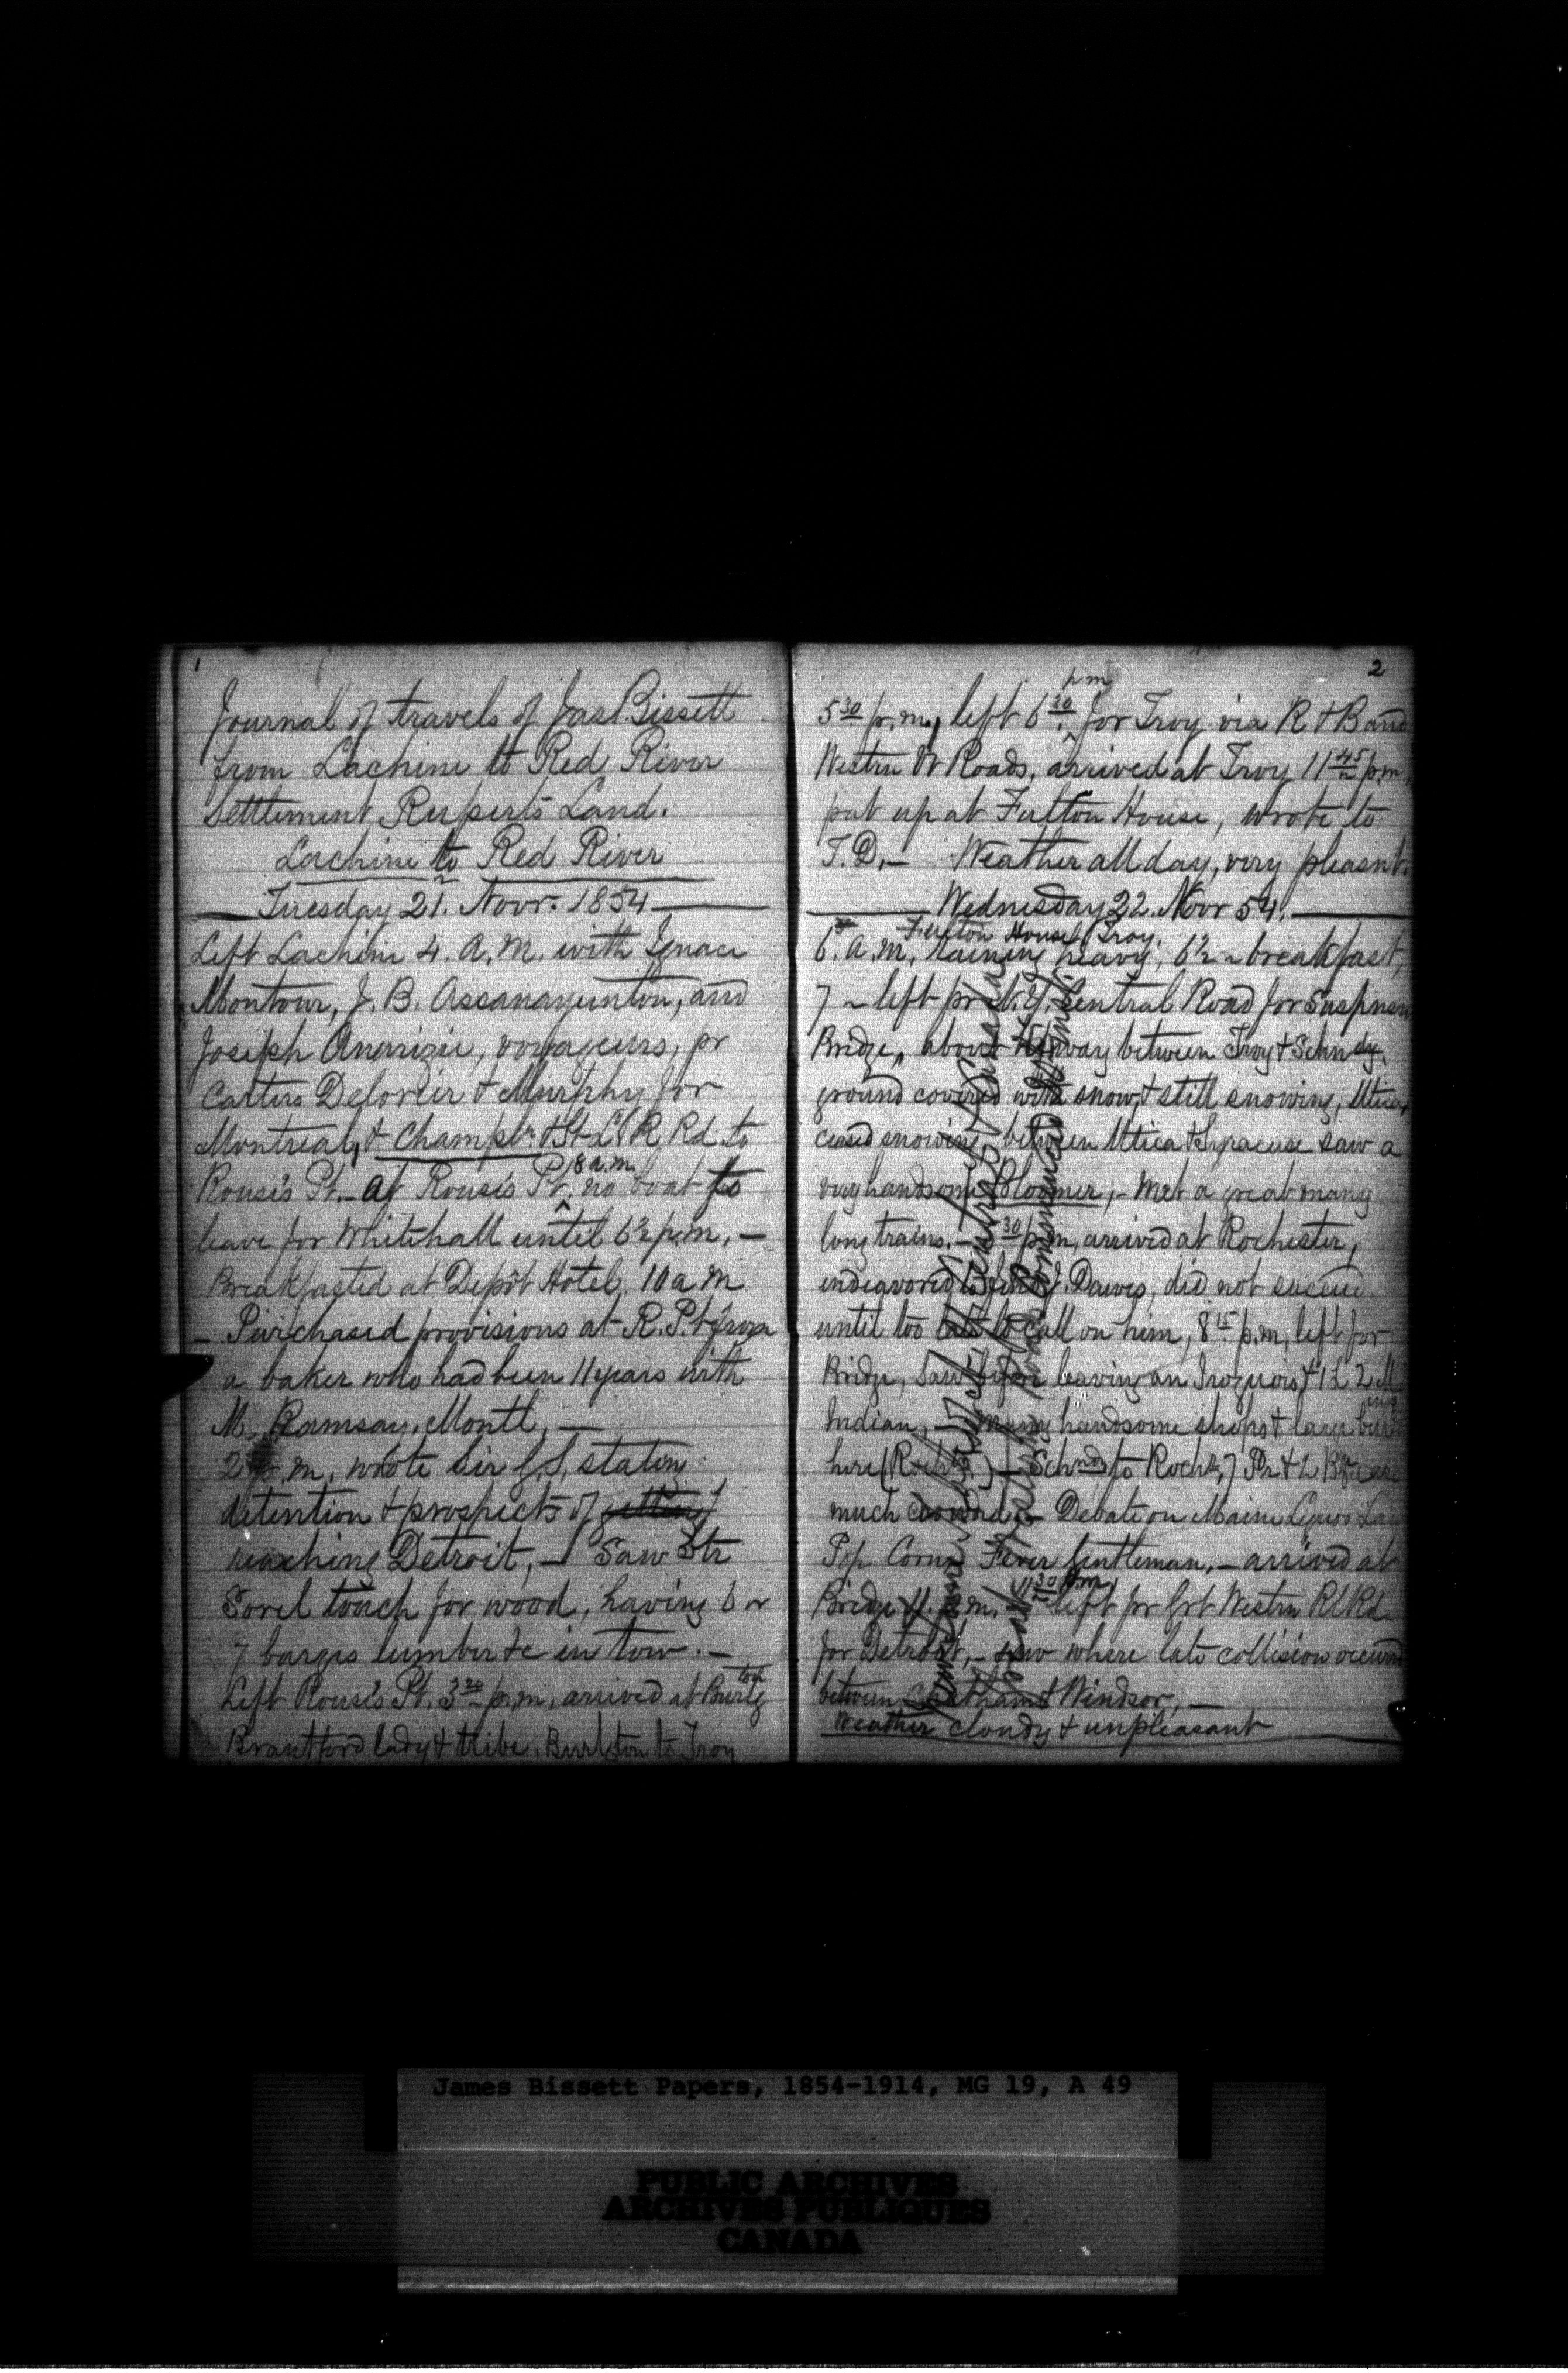 1
Journal of travels of Jas Bissett
from Lachine to Red River
Settlement Ruperts Land.
Lachine to Red River
Tuesday 21. Novr. 1854
Left Lachine 4. A.M. with Ignace
Montour, J. B. Assanayunton, and
Joseph Anarizie, voyageurs, pr
Carters Delorier & Murphy for
Montreal, & Champln & St L R Rd to
Rouse's Pt. - At Rouse's Pt. 8 a.m. no boat to
leave for Whitehall until 6½ p.m, -
Breakfasted at Depôt Hotel, 10 a m
- Purchased provisions at R. Pt from
a baker who had been 11 years with
M. Ramsay, Montl, -
2 p.m, wrote Sir G. S, stating
detention & prospects of getting
reaching Detroit, - Saw Str
Sorel touch for wood, having 6 or
7 barges lumber &c in tow. -
Left Rouse's Pt. 3 20 p.m, arrived at Burlgton
Brantford lady & tribe, Burlgton to Troy
2
5 30 p.m, left 6 20 pm for Troy via R & B and
Westrn Vt Roads, arrived at Troy 11 45 p.m,
put up at Fulton House, wrote to
T. D, - Weather all day, very pleasnt.
Wednesday 22. Novr 54.
6. a.m, Fulton House, Troy, raining heavy, 6½ - breakfast,
7 - left pr N.Y. Central Road for Suspnsn
Bridge, about way between Troy & Schndy.
ground covered with snow, & still snowing, Utica,
ceased snowing between Utica & Syracuse saw a
very handsome Bloomer, - Met a great many
long trains. - 30 p.m, arrived at Rochester,
endeavored to J. Dawes, did not succeed
until too late to call on him, 8 15 p.m, left for
Bridge, Saw before leaving an Iroquois &
Indian, - Many handsome shops & large buildings
here (Rochstr) - Schndy to Rochr, 7 Pr & L Bge cars
much crowded - Debate on Maine Liquor Law
Pop Corn Fever gentleman, - arrived at
Bridge 11. p.m. 11 30 p.m, left pr Grt Westrn Rl Rd
for Detroit, - saw where late collision occurrd
between Chatham & Windsor, -
Weather cloudy & unpleasant
James Bissett Papers, 1854-1914, MG 19, A 49
PUBLIC ARCHIVES
ARCHIVES PUBLIQUES
CANADA